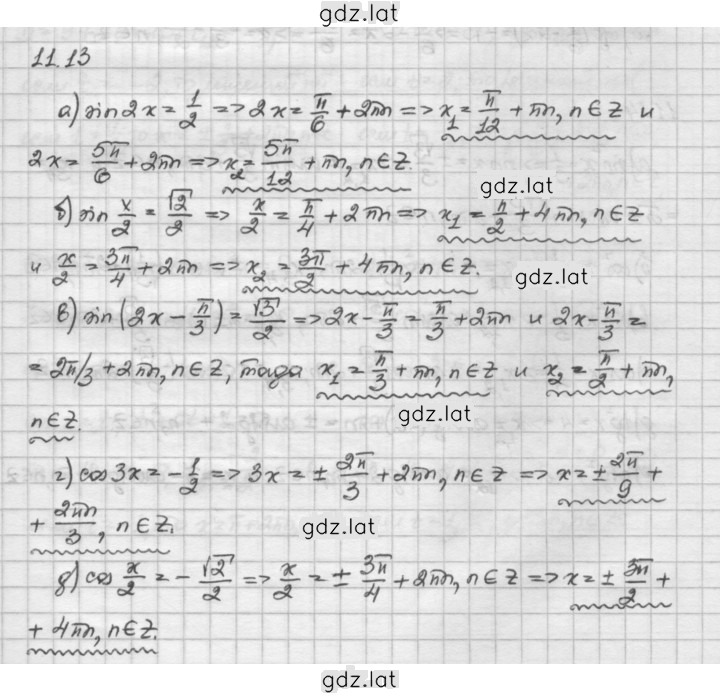 gdz.lat
11.13
а) sin 2x = 1/2 => 2x = π/6 + 2πn => x₁ = π/12 + πn, n∈Z и
2x = 5π/6 + 2πn => x₂ = 5π/12 + πn, n∈Z.
gdz.lat
б) sin x/2 = √2/2 => x/2 = π/4 + 2πn => x₁ = π/2 + 4πn, n∈Z
и x/2 = 3π/4 + 2πn => x₂ = 3π/2 + 4πn, n∈Z.
gdz.lat
в) sin(2x - π/3) = √3/2 => 2x - π/3 = π/3 + 2πn и 2x - π/3 =
= 2π/3 + 2πn, n∈Z, тогда x₁ = π/3 + πn, n∈Z и x₂ = π/2 + πn,
gdz.lat
n∈Z.
г) cos 3x = -1/2 => 3x = ± 2π/3 + 2πn, n∈Z => x = ± 2π/9 +
+ 2πn/3, n∈Z.
gdz.lat
д) cos x/2 = -√2/2 => x/2 = ± 3π/4 + 2πn, n∈Z => x = ± 3π/2 +
+ 4πn, n∈Z.
gdz.lat